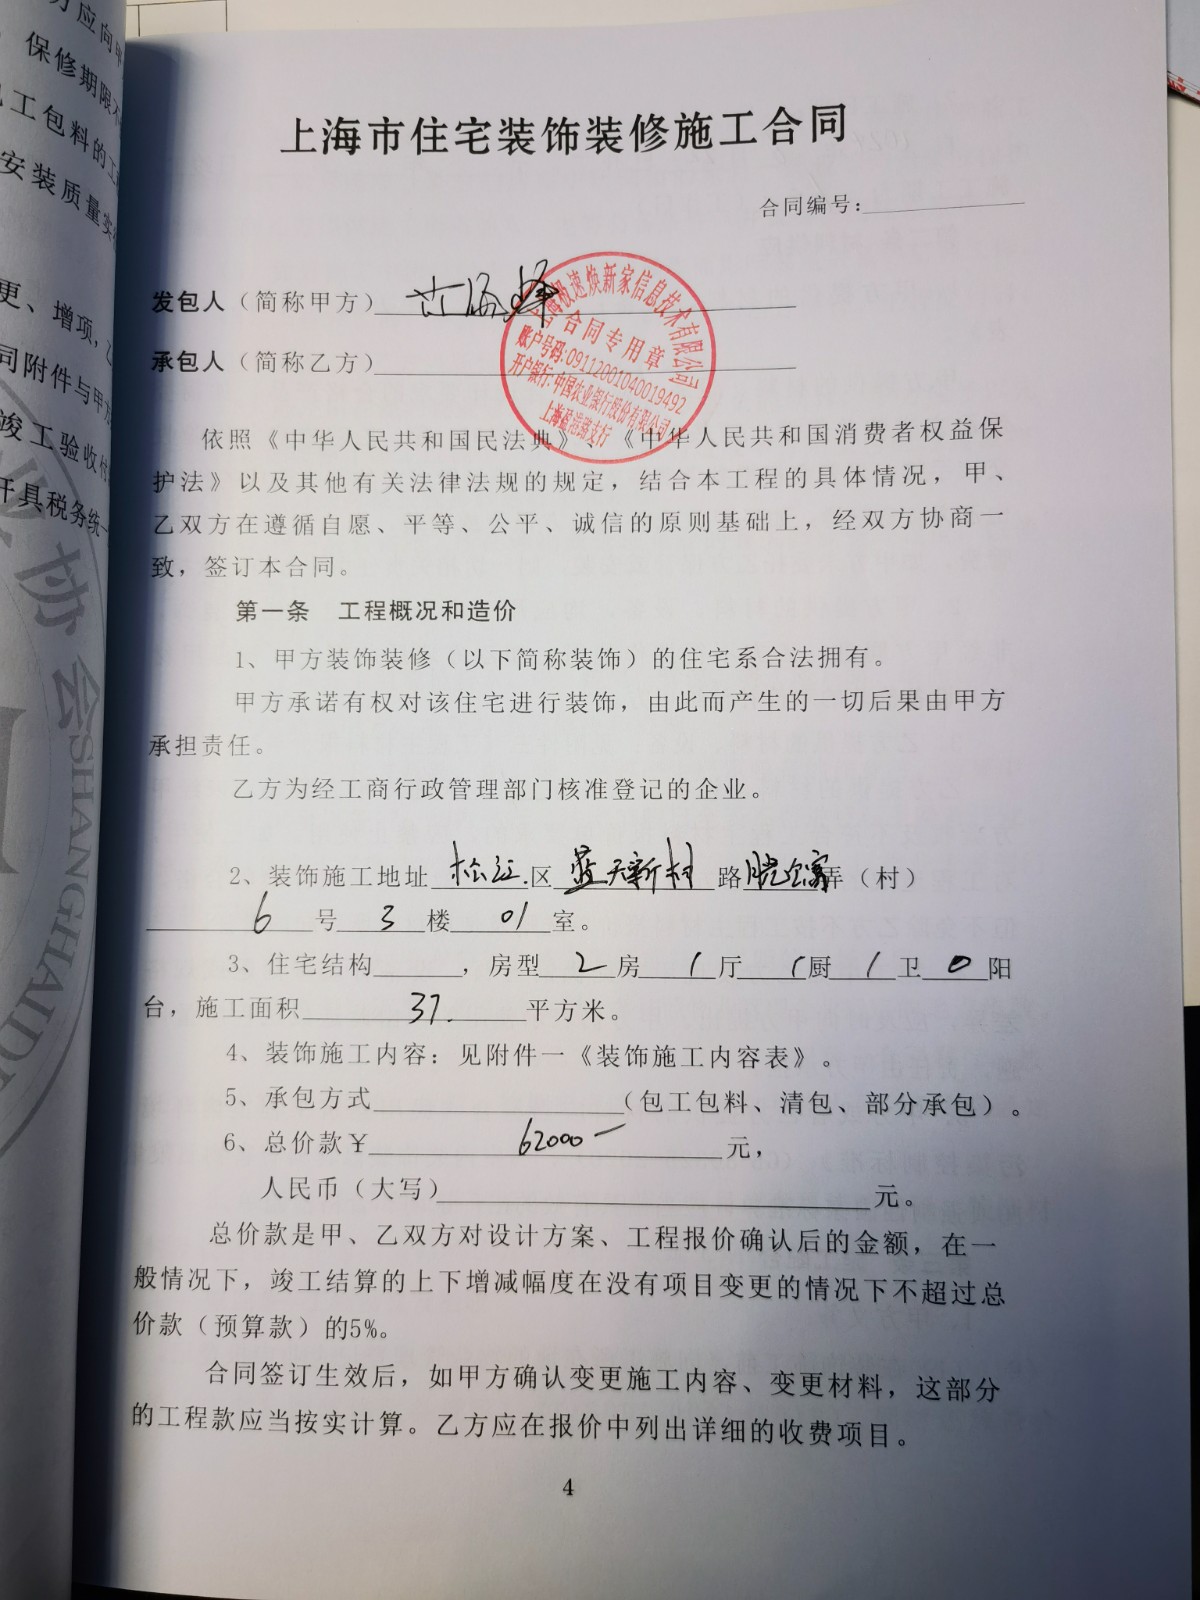 方应向甲
保修期限不
包工包料的工
安装质量实
更、增项，
同附件与甲方
竣工验收
开具税务统一
协会SHANGHAI
上海市住宅装饰装修施工合同
合同编号：
发包人（简称甲方）
承包人（简称乙方）
极速焕新家信息技术有限公司
合同专用章
账户号码:09112001040019492
开户银行:中国农业银行股份有限公司
上海盈港路支行
依照《中华人民共和国民法典》、《中华人民共和国消费者权益保
护法》以及其他有关法律法规的规定，结合本工程的具体情况，甲、
乙双方在遵循自愿、平等、公平、诚信的原则基础上，经双方协商一
致，签订本合同。
第一条 工程概况和造价
1、甲方装饰装修（以下简称装饰）的住宅系合法拥有。
甲方承诺有权对该住宅进行装饰，由此而产生的一切后果由甲方
承担责任。
乙方为经工商行政管理部门核准登记的企业。
2、装饰施工地址 松江 区 蓝天新村 路 弄（村）
6 号 3 楼 01 室。
3、住宅结构 ，房型 2 房 1 厅 1 厨 1 卫 0 阳
台，施工面积 37. 平方米。
4、装饰施工内容：见附件一《装饰施工内容表》。
5、承包方式 （包工包料、清包、部分承包）。
6、总价款￥ 62000— 元，
人民币（大写） 元。
总价款是甲、乙双方对设计方案、工程报价确认后的金额，在一
般情况下，竣工结算的上下增减幅度在没有项目变更的情况下不超过总
价款（预算款）的5%。
合同签订生效后，如甲方确认变更施工内容、变更材料，这部分
的工程款应当按实计算。乙方应在报价中列出详细的收费项目。
4